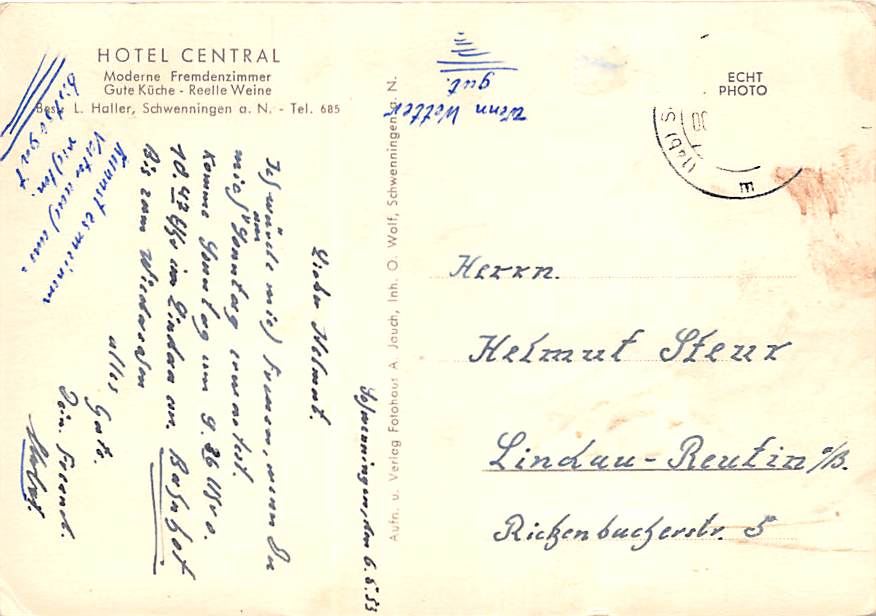 HOTEL CENTRAL
Moderne Fremdenzimmer
Gute Küche - Reelle Weine
Bes.: L. Haller, Schwenningen a. N. - Tel. 685
Schwenningen, den 6.8.53
Lieber Helmut.
Ich würde mich freuen, wenn Du
mich am Sonntag erwartest.
Komme Sonntag um 9.26 Uhr o.
10.47 Uhr in Lindau an. Bahnhof
Bis zum Wiedersehn
alles Gute.
Dein Freund.
Kannst es meinem
Vater
Wenn Wetter
gut.
Aufn. u. Verlag Fotohaus A. Jauch, Inh. O. Wolf, Schwenningen a. N.
ECHT
PHOTO
Herrn.
Helmut Steur
Lindau-Reutin a/B.
Rickenbacherstr. 5